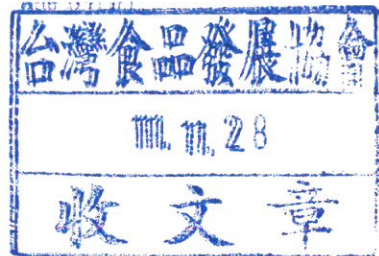 台灣食品發展協會
111. 11. 28
收文章